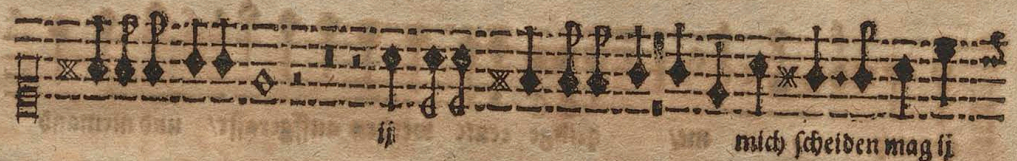 ij mich scheiden mag ij